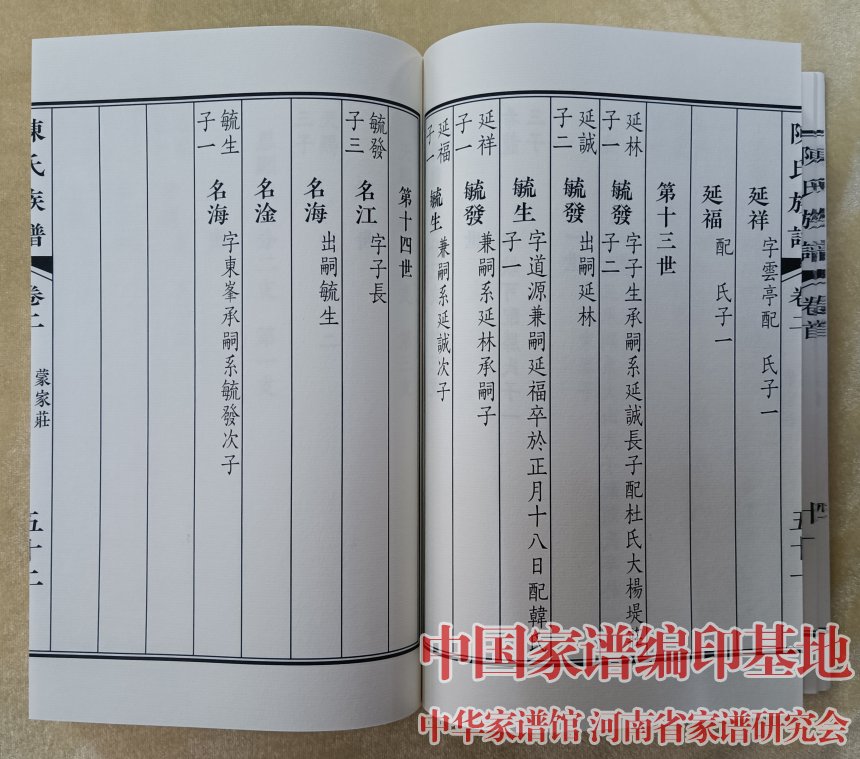 陳氏族譜 卷首
陳氏族譜 卷二 五十一
延祥 字雲亭配 氏子一
延福 配 氏子一
第十三世
延林子一 毓發 字子生承嗣系延誠長子配杜氏大楊堤
子二
延誠子二 毓發 出嗣延林
毓生 字道源兼嗣延福卒於正月十八日配韓
子一
延祥子一 毓發 兼嗣系延林承嗣子
延福子一 毓生 兼嗣系延誠次子
第十四世
毓發子三 名江 字子長
名海 出嗣毓生
名淦
毓生子一 名海 字東峯承嗣系毓發次子
陳氏族譜 卷二 蒙家莊 五十二
中国家谱编印基地
中华家谱馆 河南省家谱研究会